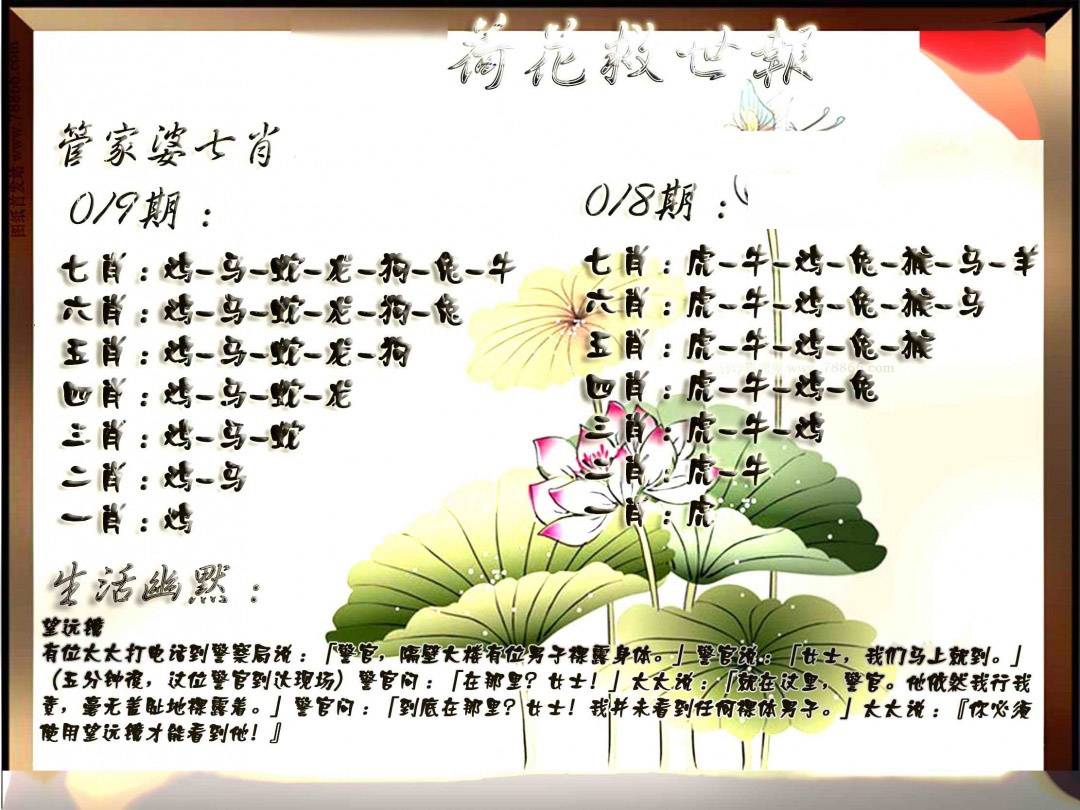 荷花救世報
管家婆七肖
019期：
七肖：鸡-马-蛇-龙-狗-兔-牛
六肖：鸡-马-蛇-龙-狗-兔
五肖：鸡-马-蛇-龙-狗
四肖：鸡-马-蛇-龙
三肖：鸡-马-蛇
二肖：鸡-马
一肖：鸡
018期：
七肖：虎-牛-鸡-兔-猴-马-羊
六肖：虎-牛-鸡-兔-猴-马
五肖：虎-牛-鸡-兔-猴
四肖：虎-牛-鸡-兔
三肖：虎-牛-鸡
二肖：虎-牛
一肖：虎
生活幽默：
望远镜
有位太太打电话到警察局说：「警官，隔壁大楼有位男子裸露身体。」警官说：「女士，我们马上就到。」
（五分钟后，这位警官到达现场）警官问：「在那里？女士！」太太说：「就在这里，警官。他依然我行我
素，毫无羞耻地裸露着。」警官问：「到底在那里？女士！我并未看到任何裸体男子。」太太说：『你必须
使用望远镜才能看到他！』